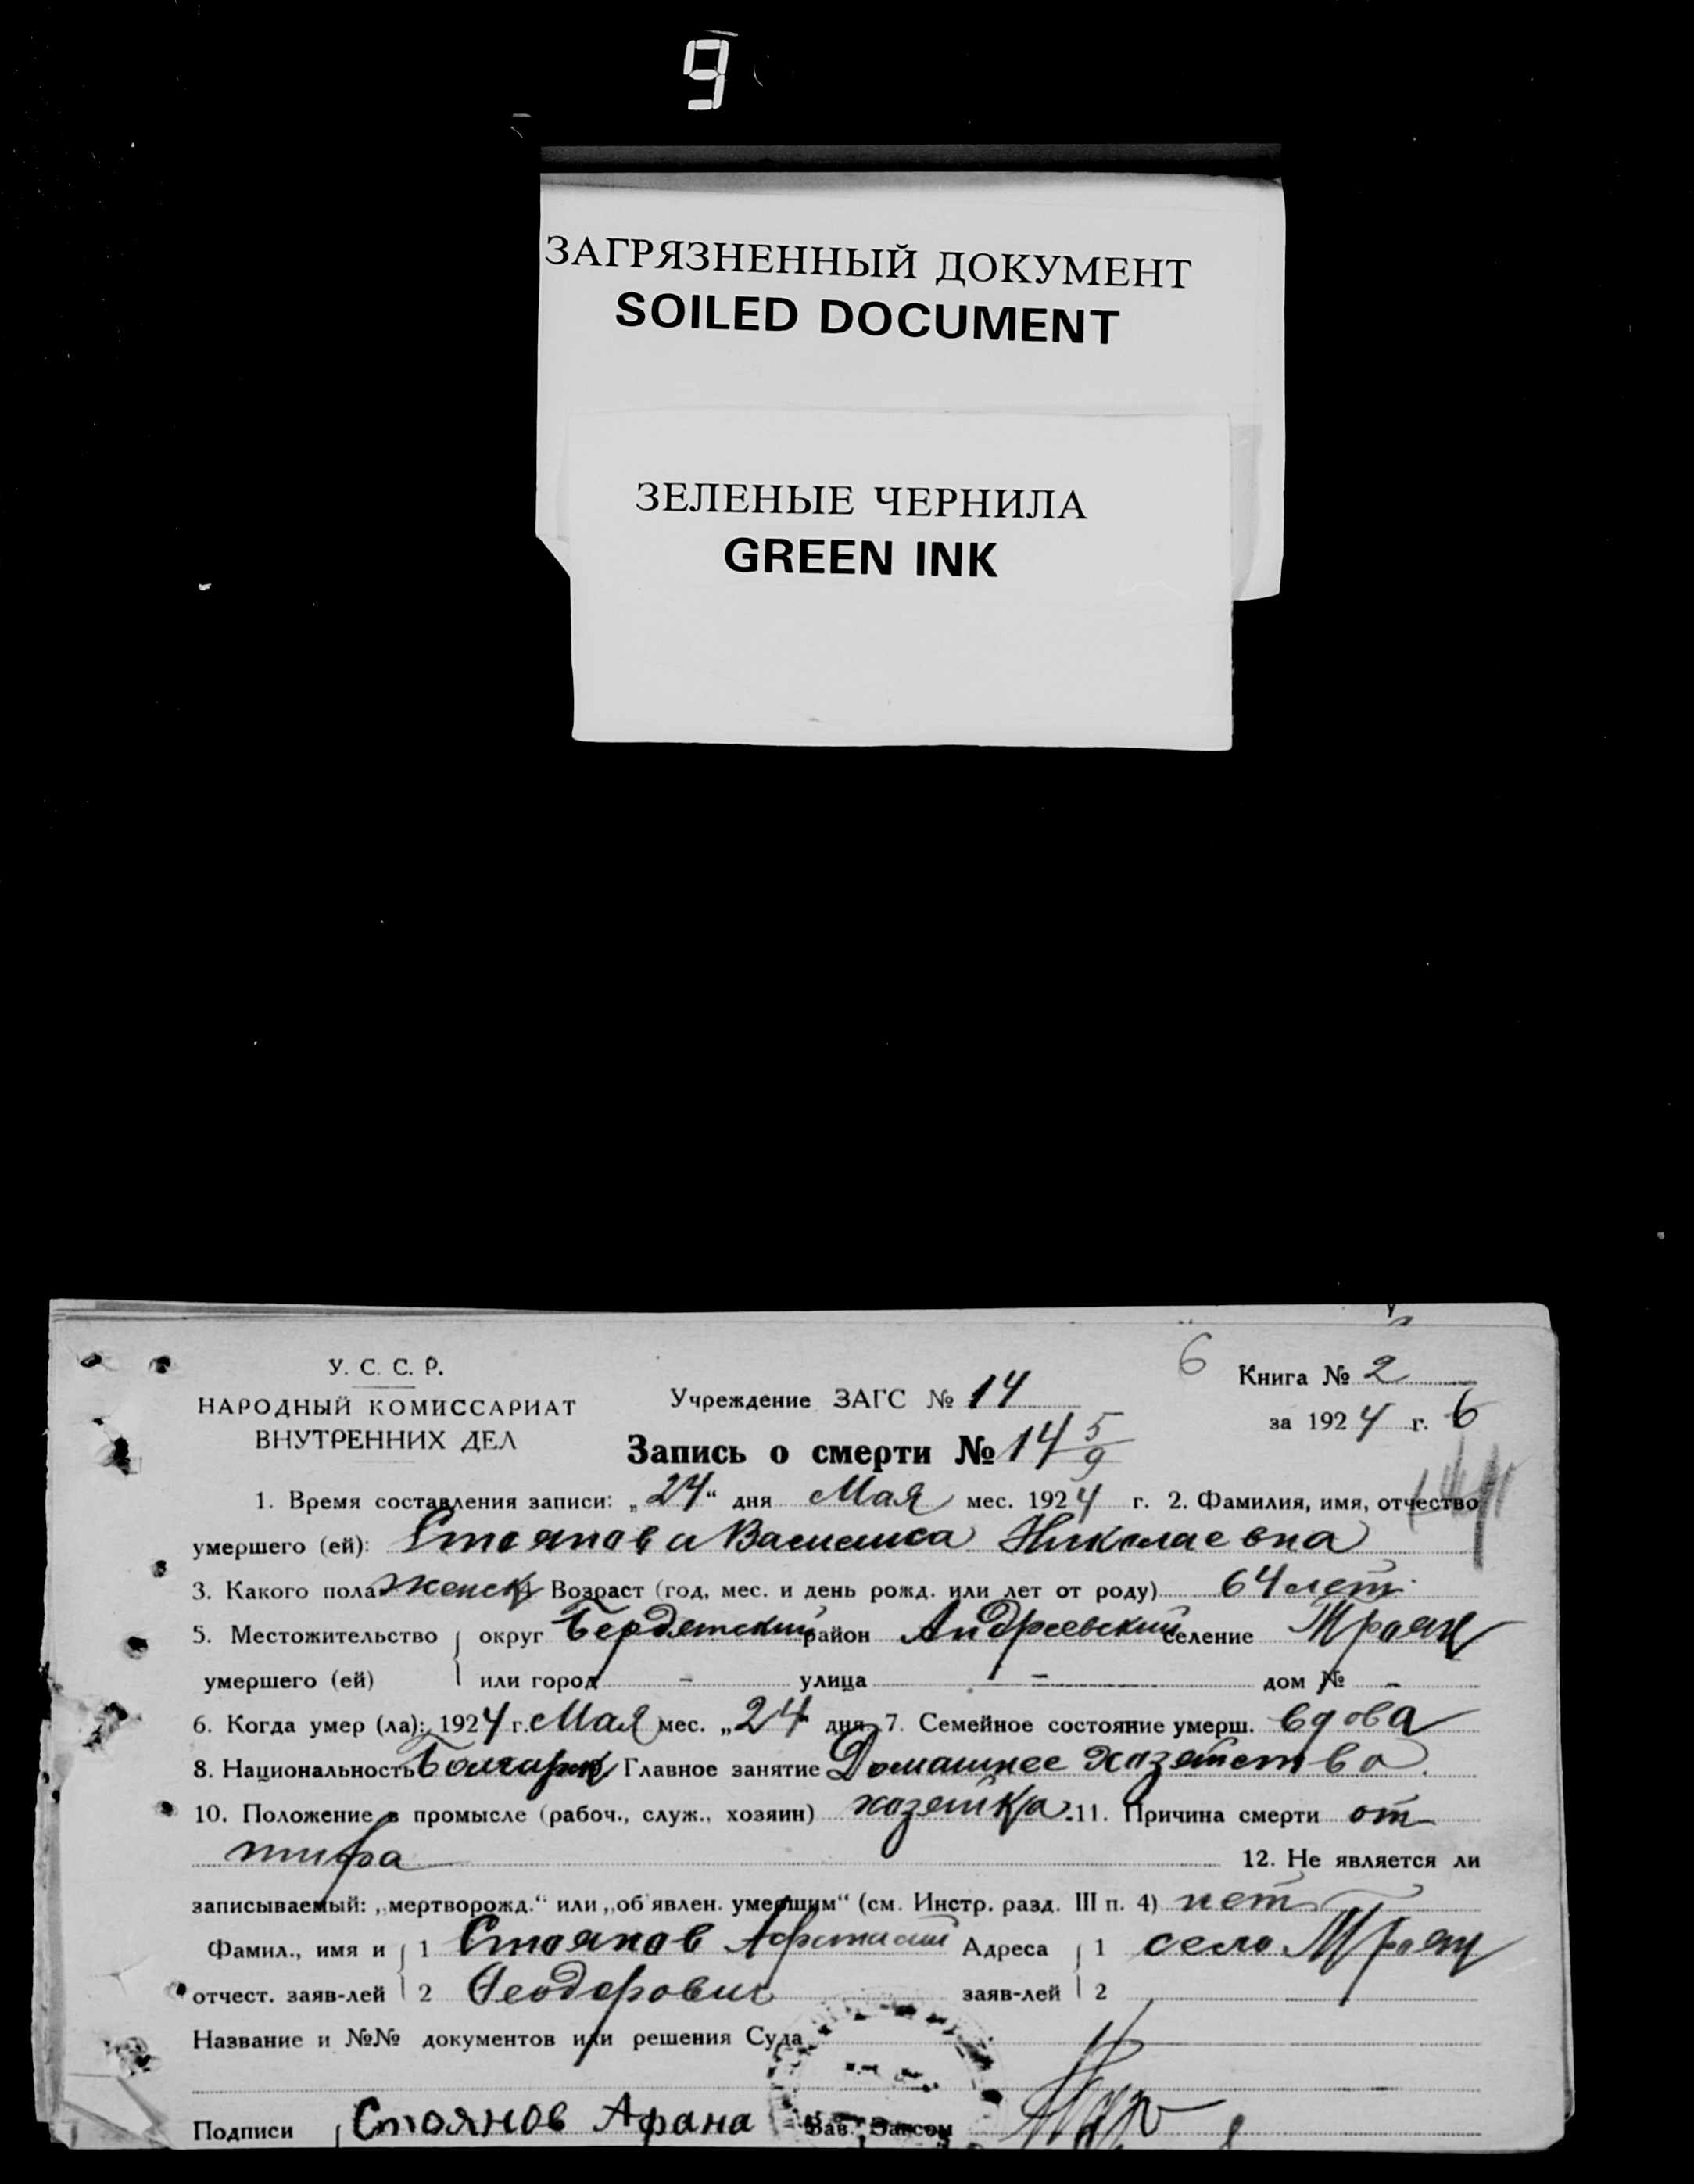 9
ЗАГРЯЗНЕННЫЙ ДОКУМЕНТ
SOILED DOCUMENT
ЗЕЛЕНЫЕ ЧЕРНИЛА
GREEN INK
У. С. С. Р.
НАРОДНЫЙ КОМИССАРИАТ
ВНУТРЕННИХ ДЕЛ
Учреждение ЗАГС № 14
6 Книга № 2
за 1924 г. 6
Запись о смерти № 14 5/9
1. Время составления записи: „24“ дня Мая мес. 1924 г. 2. Фамилия, имя, отчество
умершего (ей): Стоянова Василиса Николаевна
3. Какого пола женск 4 Возраст (год, мес. и день рожд. или лет от роду) 64 лет
5. Местожительство округ Бердянский район Андреевский селение Троян
умершего (ей) или город – улица – дом № –
6. Когда умер (ла): 1924 г. Мая мес. „24“ дня 7. Семейное состояние умерш. вдова
8. Национальность Болгарк Главное занятие Домашнее хозяйство.
10. Положение в промысле (рабоч., служ., хозяин) хозяйка. 11. Причина смерти от
тифа 12. Не является ли
записываемый: „мертворожд.“ или „об'явлен. умершим“ (см. Инстр. разд. III п. 4) нет
Фамил., имя и 1 Стоянов Афанасий Адреса 1 село Троян
отчест. заяв-лей 2 Феодорович заяв-лей 2
Название и №№ документов или решения Суда
Подписи Стоянов Афана Зав. Загсом